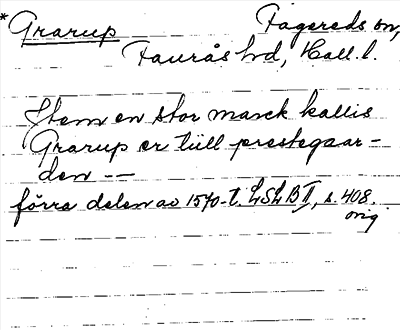 * Grarup Fagereds sn,
Faurås hd, Hall. l.
Item en stor marck kallis
Grarup er tiill prestegaar-
den --
förra delen av 1570-t. LSLB II, s. 408.
orig